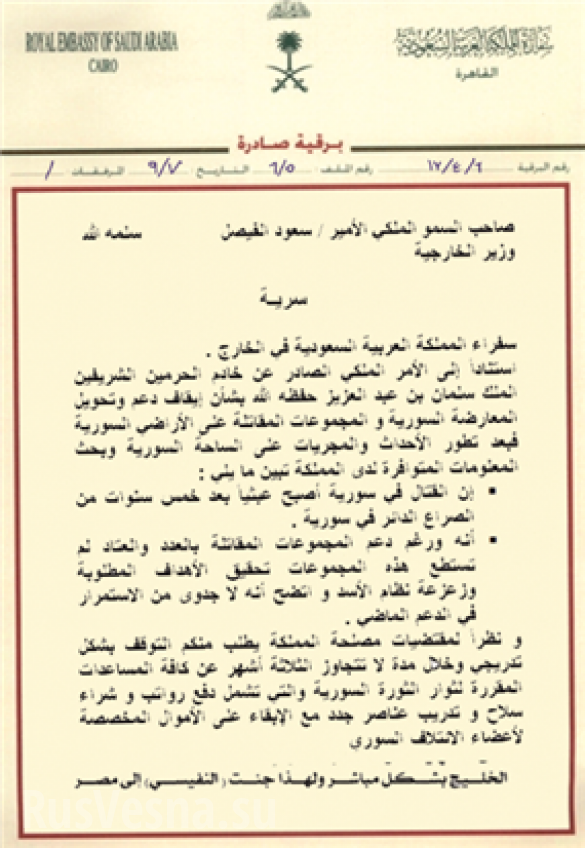 ROYAL EMBASSY OF SAUDI ARABIA
CAIRO
سفارة المملكة العربية السعودية
القاهرة
برقية صادرة
رقم البرقية ١٧/٤/٦ رقم الملف ٦/٥ التاريخ ٩/٧ المرفقات /
صاحب السمو الملكي الأمير / سعود الفيصل سلمه الله
وزير الخارجية
سرية
سفراء المملكة العربية السعودية في الخارج .
استناداً إلى الأمر الملكي الصادر عن خادم الحرمين الشريفين
الملك سلمان بن عبد العزيز حفظه الله بشأن إيقاف دعم وتحويل
المعارضة السورية و المجموعات المقاتلة على الأراضي السورية
فبعد تطور الأحداث والمجريات على الساحة السورية وبحث
المعلومات المتوافرة لدى المملكة تبين ما يلي :
• إن القتال في سورية أصبح عبثياً بعد خمس سنوات من
الصراع الدائر في سورية .
• أنه ورغم دعم المجموعات المقاتلة بالعدد والعتاد لم
تستطع هذه المجموعات تحقيق الأهداف المطلوبة
وزعزعة نظام الأسد و اتضح أنه لا جدوى من الاستمرار
في الدعم الماضي .
و نظراً لمقتضيات مصلحة المملكة يطلب منكم التوقف بشكل
تدريجي وخلال مدة لا تتجاوز الثلاثة أشهر عن كافة المساعدات
المقررة لثوار الثورة السورية والتي تشمل دفع رواتب و شراء
سلاح و تدريب عناصر جدد مع الإبقاء على الأموال المخصصة
لأعضاء الائتلاف السوري
الخليج بشكل مباشر ولهذا جئت (النفيسي) إلى مصر
RusVesna.su